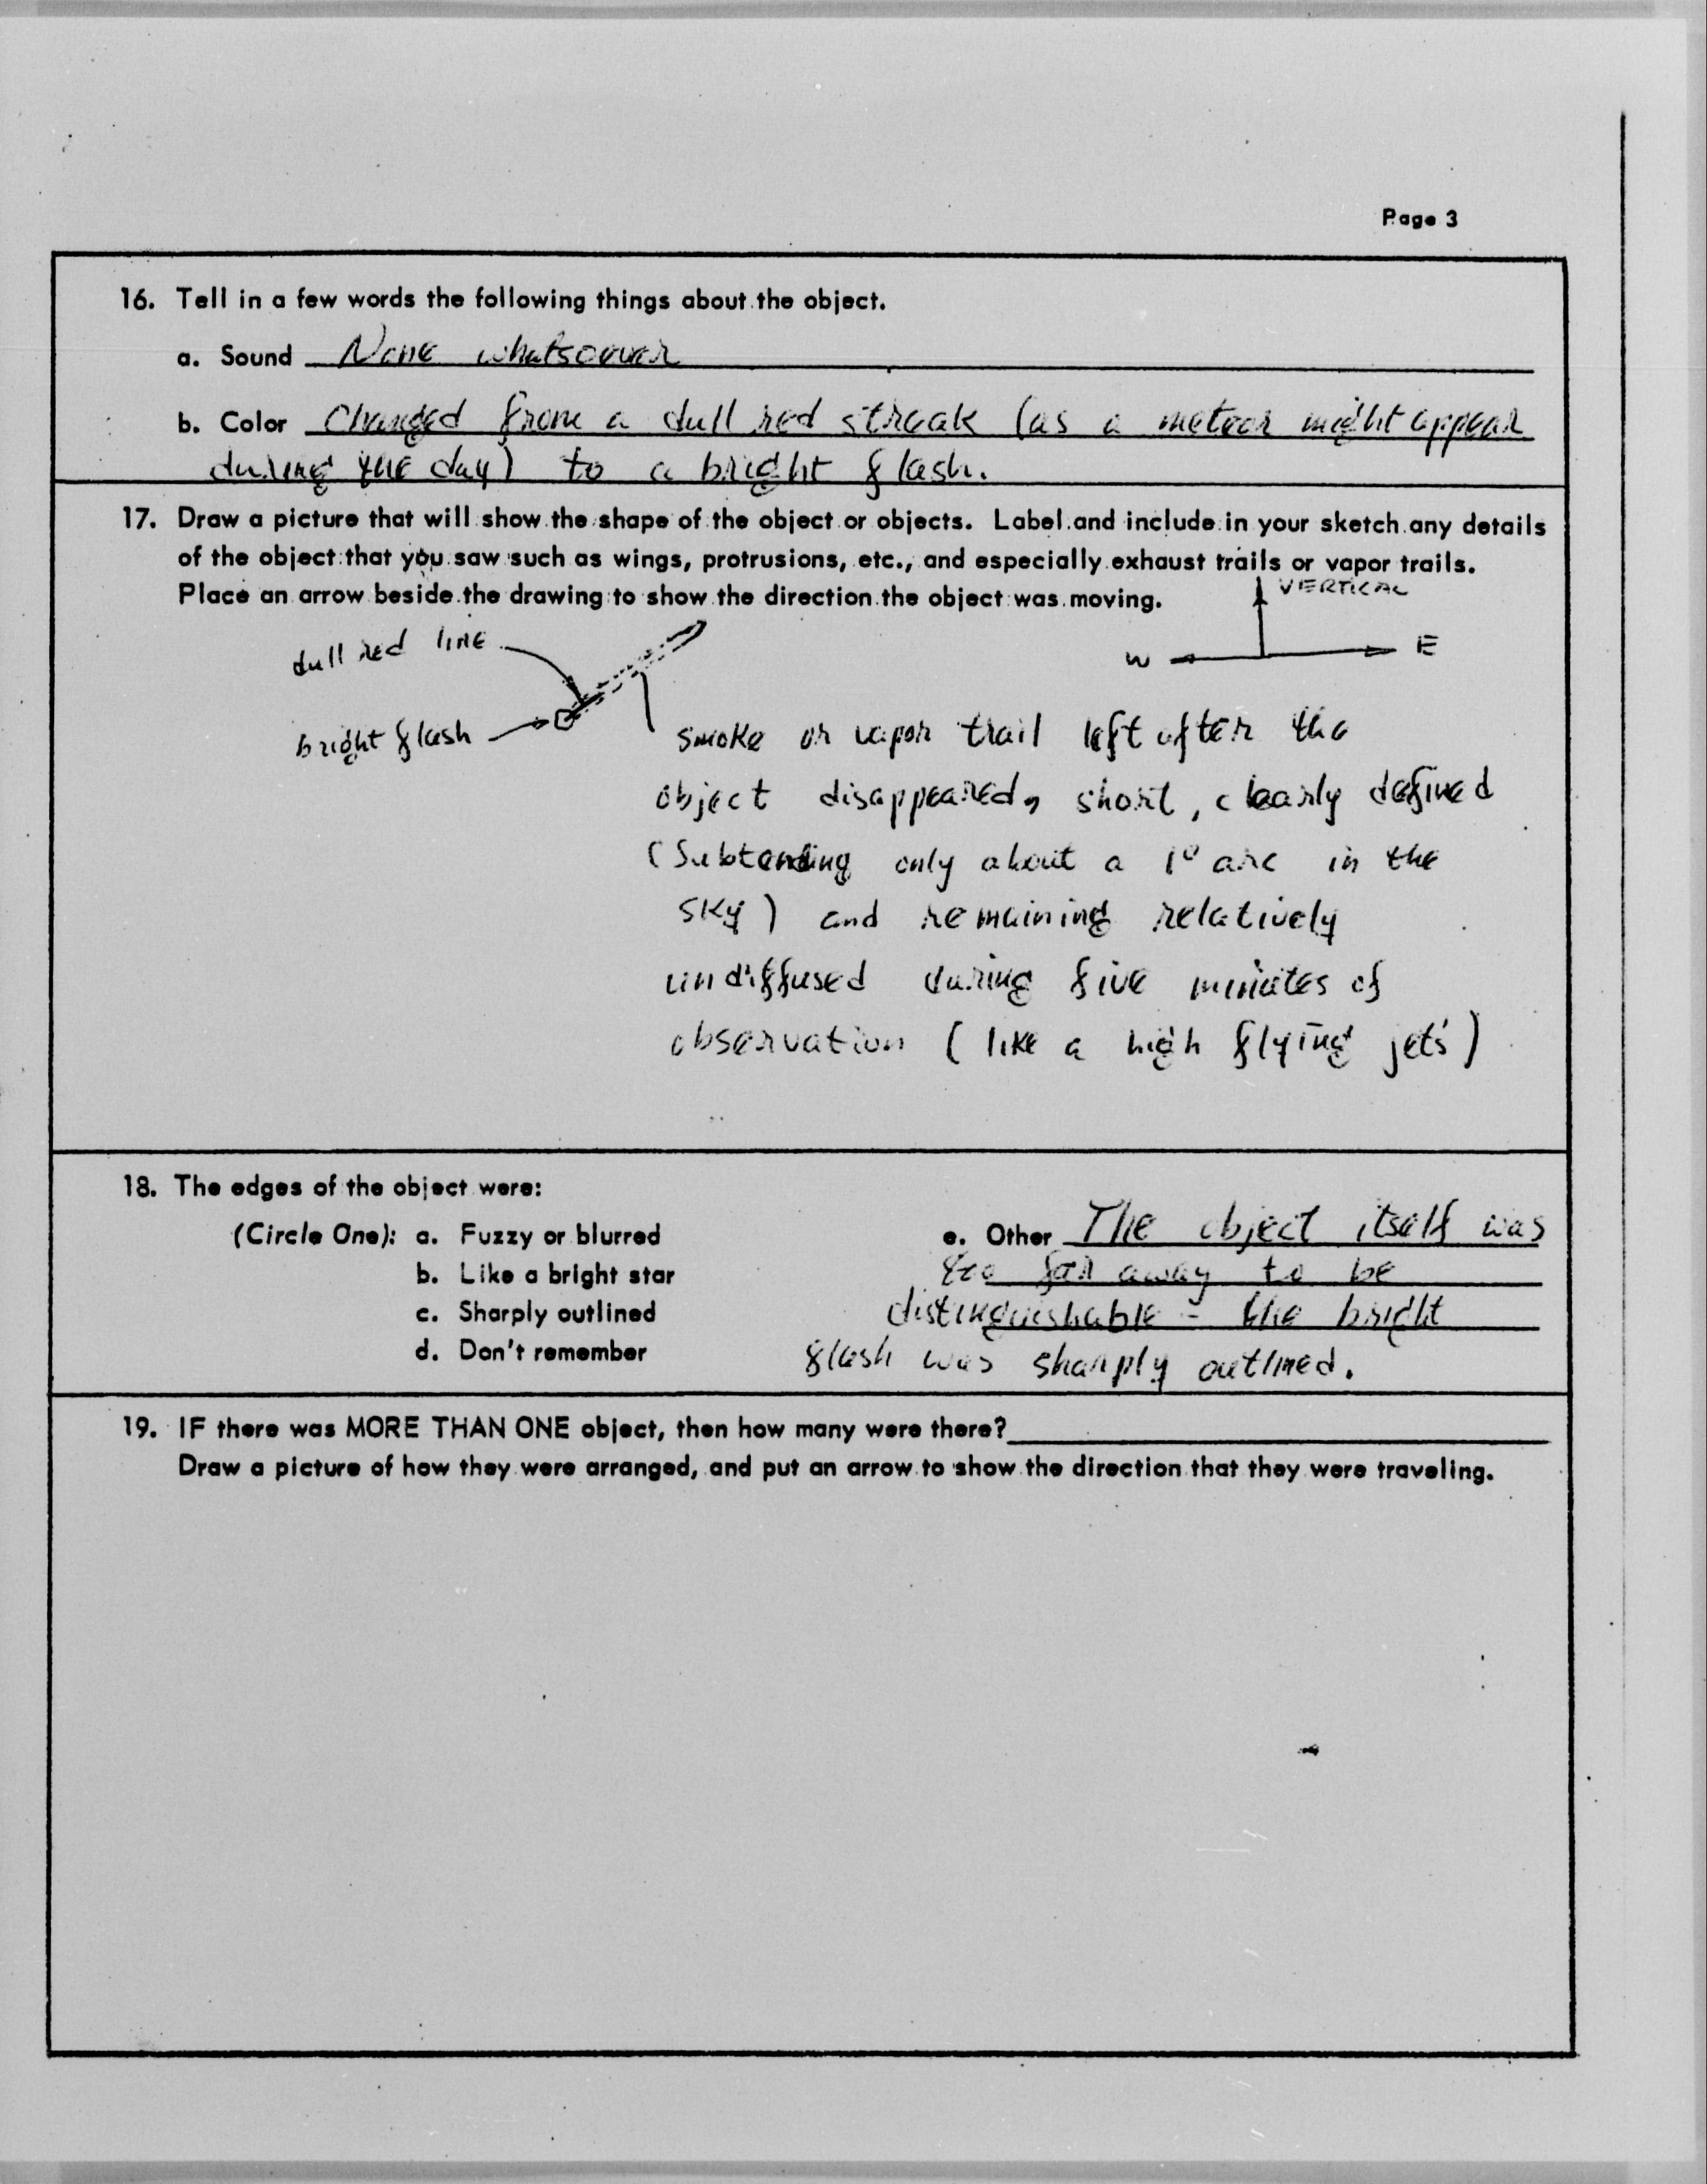 Page 3
16. Tell in a few words the following things about the object.
a. Sound None whatsoever
b. Color Changed from a dull red streak (as a meteor might appear
during the day) to a bright flash.
17. Draw a picture that will show the shape of the object or objects. Label and include in your sketch any details
of the object that you saw such as wings, protrusions, etc., and especially exhaust trails or vapor trails.
Place an arrow beside the drawing to show the direction the object was moving.
VERTICAL
W E
dull red line
bright flash
smoke or vapor trail left after the
object disappeared, short, clearly defined
(Subtending only about a 1° arc in the
sky) and remaining relatively
undiffused during five minutes of
observation (like a high flying jets')
18. The edges of the object were:
(Circle One): a. Fuzzy or blurred
b. Like a bright star
c. Sharply outlined
d. Don't remember
e. Other The object itself was
too far away to be
distinguishable - the bright
flash was sharply outlined.
19. IF there was MORE THAN ONE object, then how many were there?
Draw a picture of how they were arranged, and put an arrow to show the direction that they were traveling.